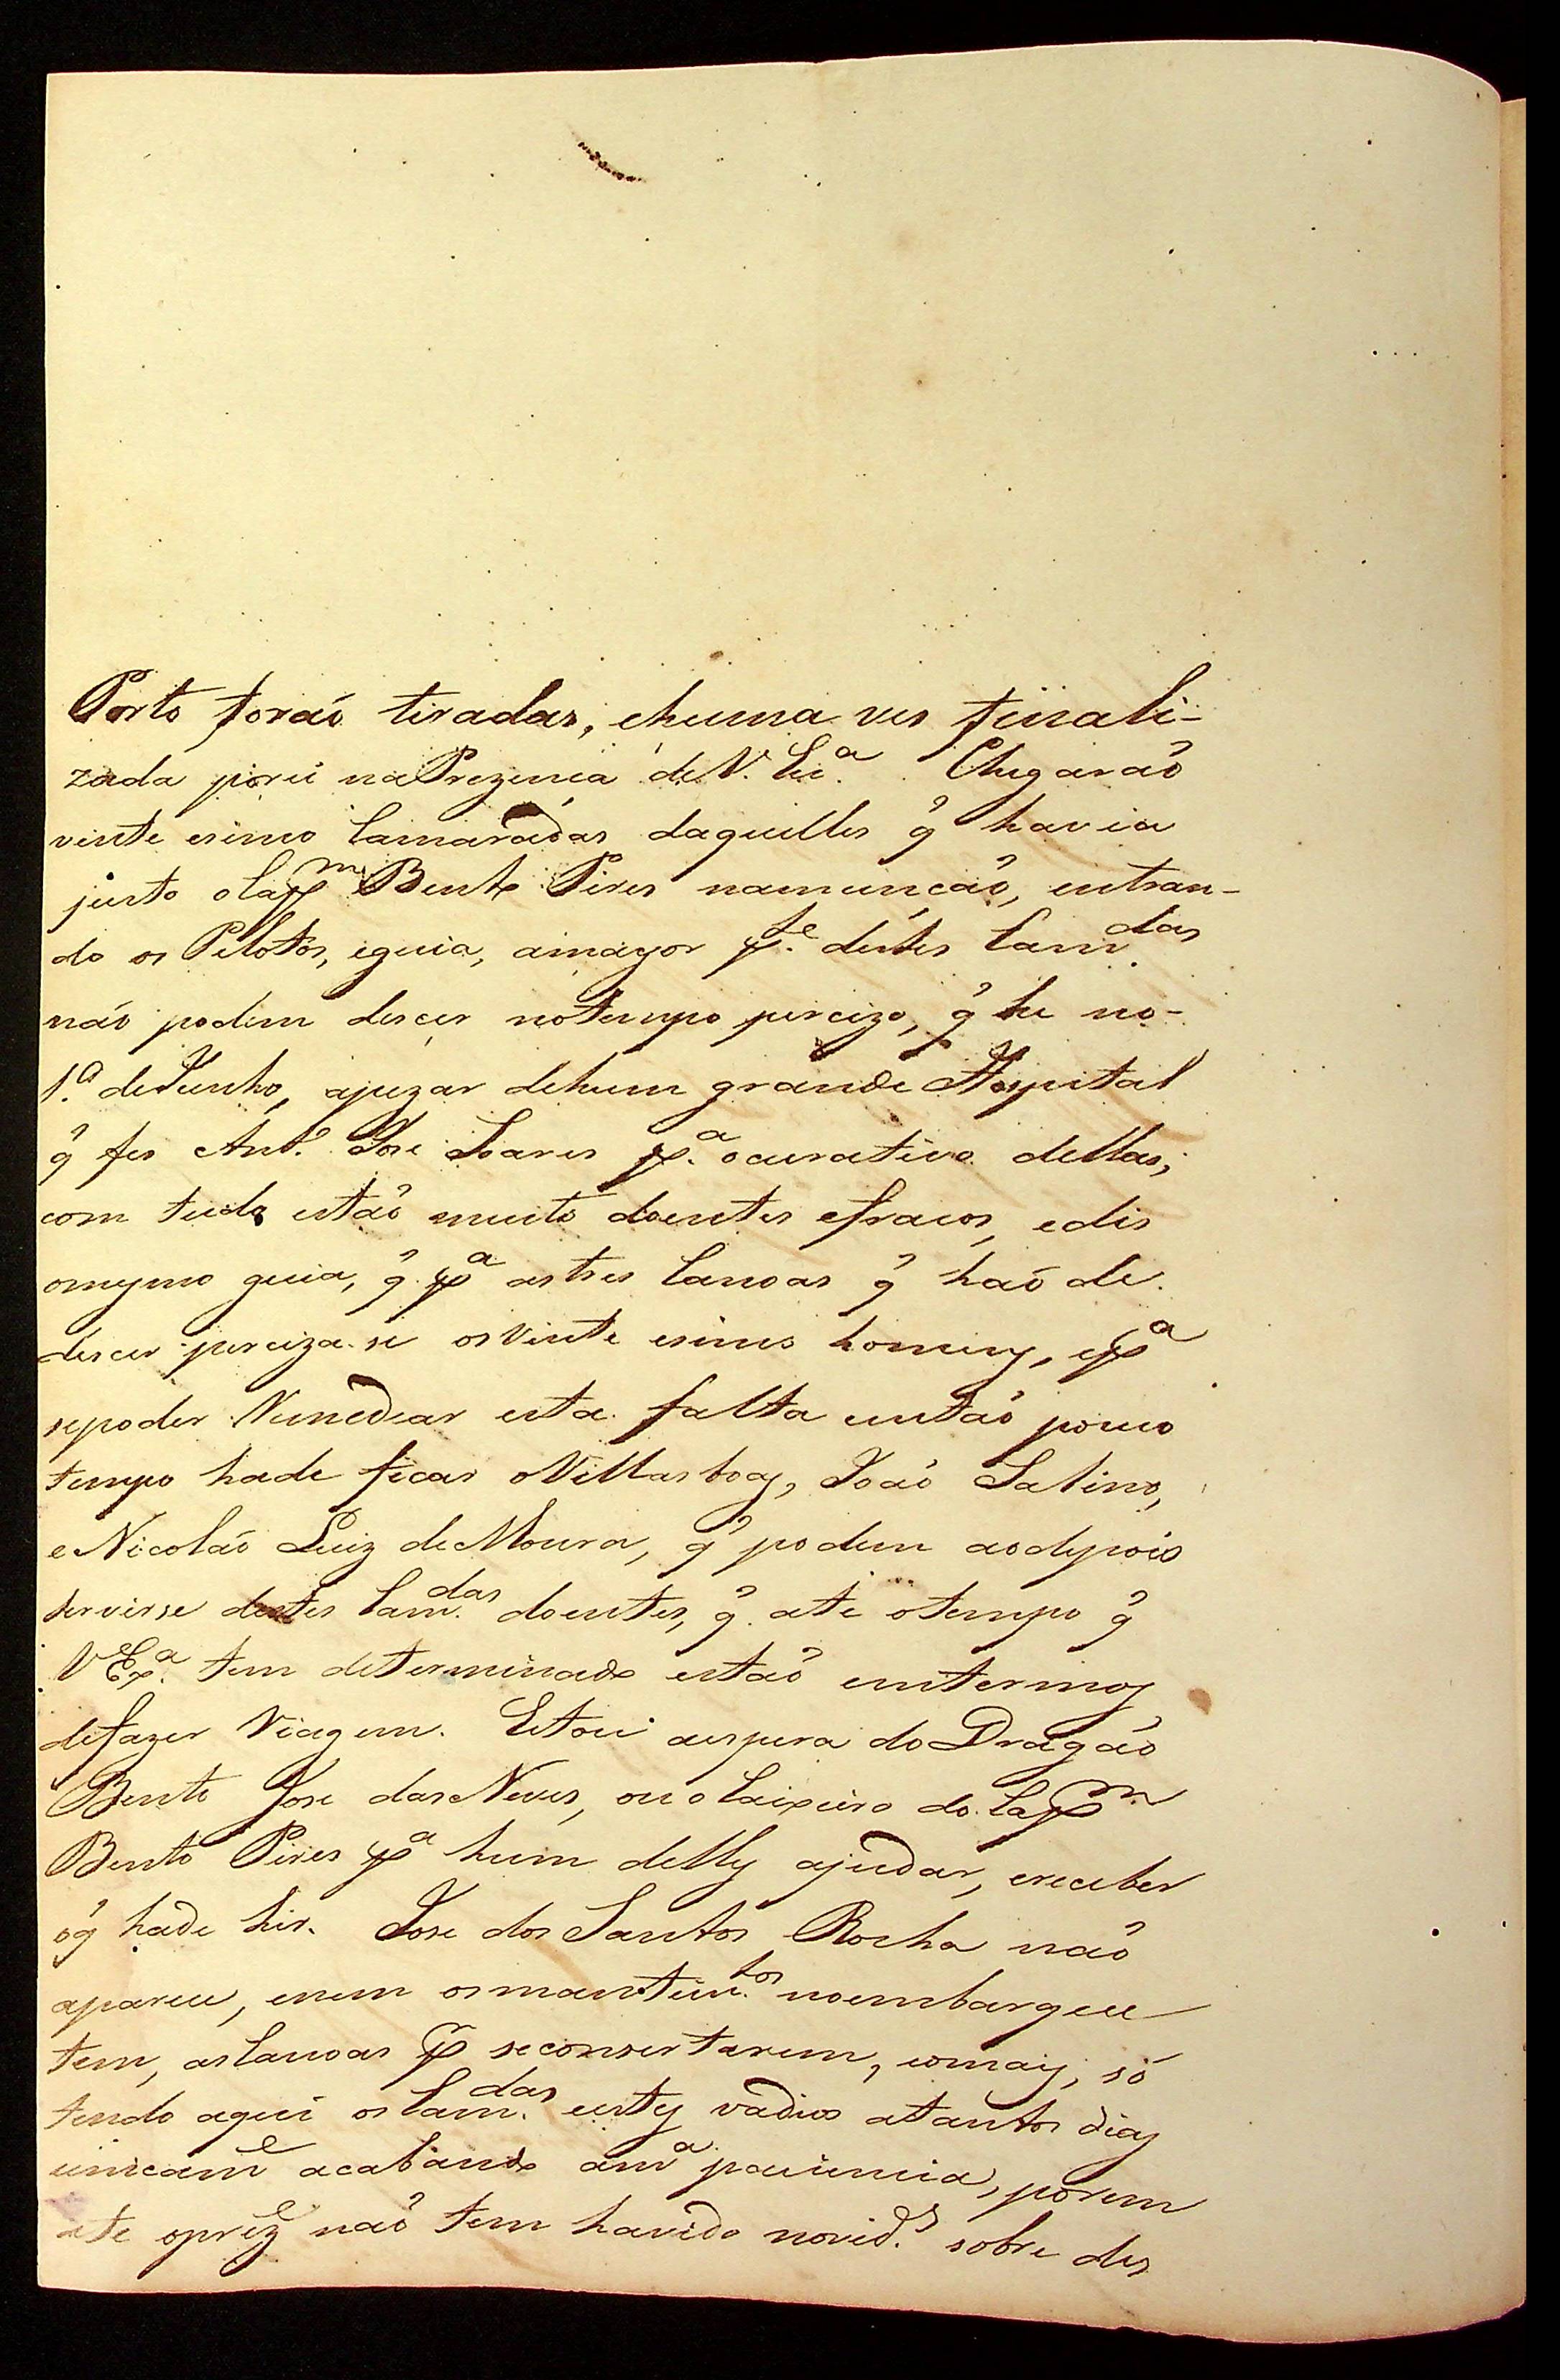 Porto foraõ tiradas, ehuma ves finali-
zada porei naPrezença deV. Ex.ª Chegaraõ
vinte esinco Camaradas daquelles q̃ havia
justo oCap.m Bento Pires namunçaõ, entran-
do os Pelotos, eguia, amayor p.te destes Cam.das
naõ podem descer notempo percizo, q̃ he no-
1.º deJunho, apezar dehum grande Hospital
q̃ fes Ant.º Joze Soares p.ª ocurativo dellas;
com tudo estaõ muito doentes efracos, edis
omesmo guia, q̃ p.ª astres Canoas q̃ haõ de
descer perciza-se osvinte esinco homens, ep.ª
sepoder Remediar esta falta entaõ pouco
tempo hade ficar oVillasboas, Joaõ Salino,
eNicoláo Luiz deMoura, q̃ podem aodepois
servirse destes Cam.das doentes, q̃ até otempo q̃
VEx.ª tem determinado estaõ emtermos
defazer Viagem. Estou aespera doDragaõ
Bento Joze dasNeves, ou oCaixeiro do Cap.m
Bento Pires p.ª hum delles ajudar, ereceber
oq̃ hade hir. Joze dos Santos Rocha naõ
aparece, enem osmantim.tos noembarque
tem, asCanoas p.r seconsertarem, eomais, só
tendo aqui osCam.das estes vadios atantos dias
unicam.e acabando am.ª paciencia, porem
ate oprez.e naõ tem havido novid.e sobre des